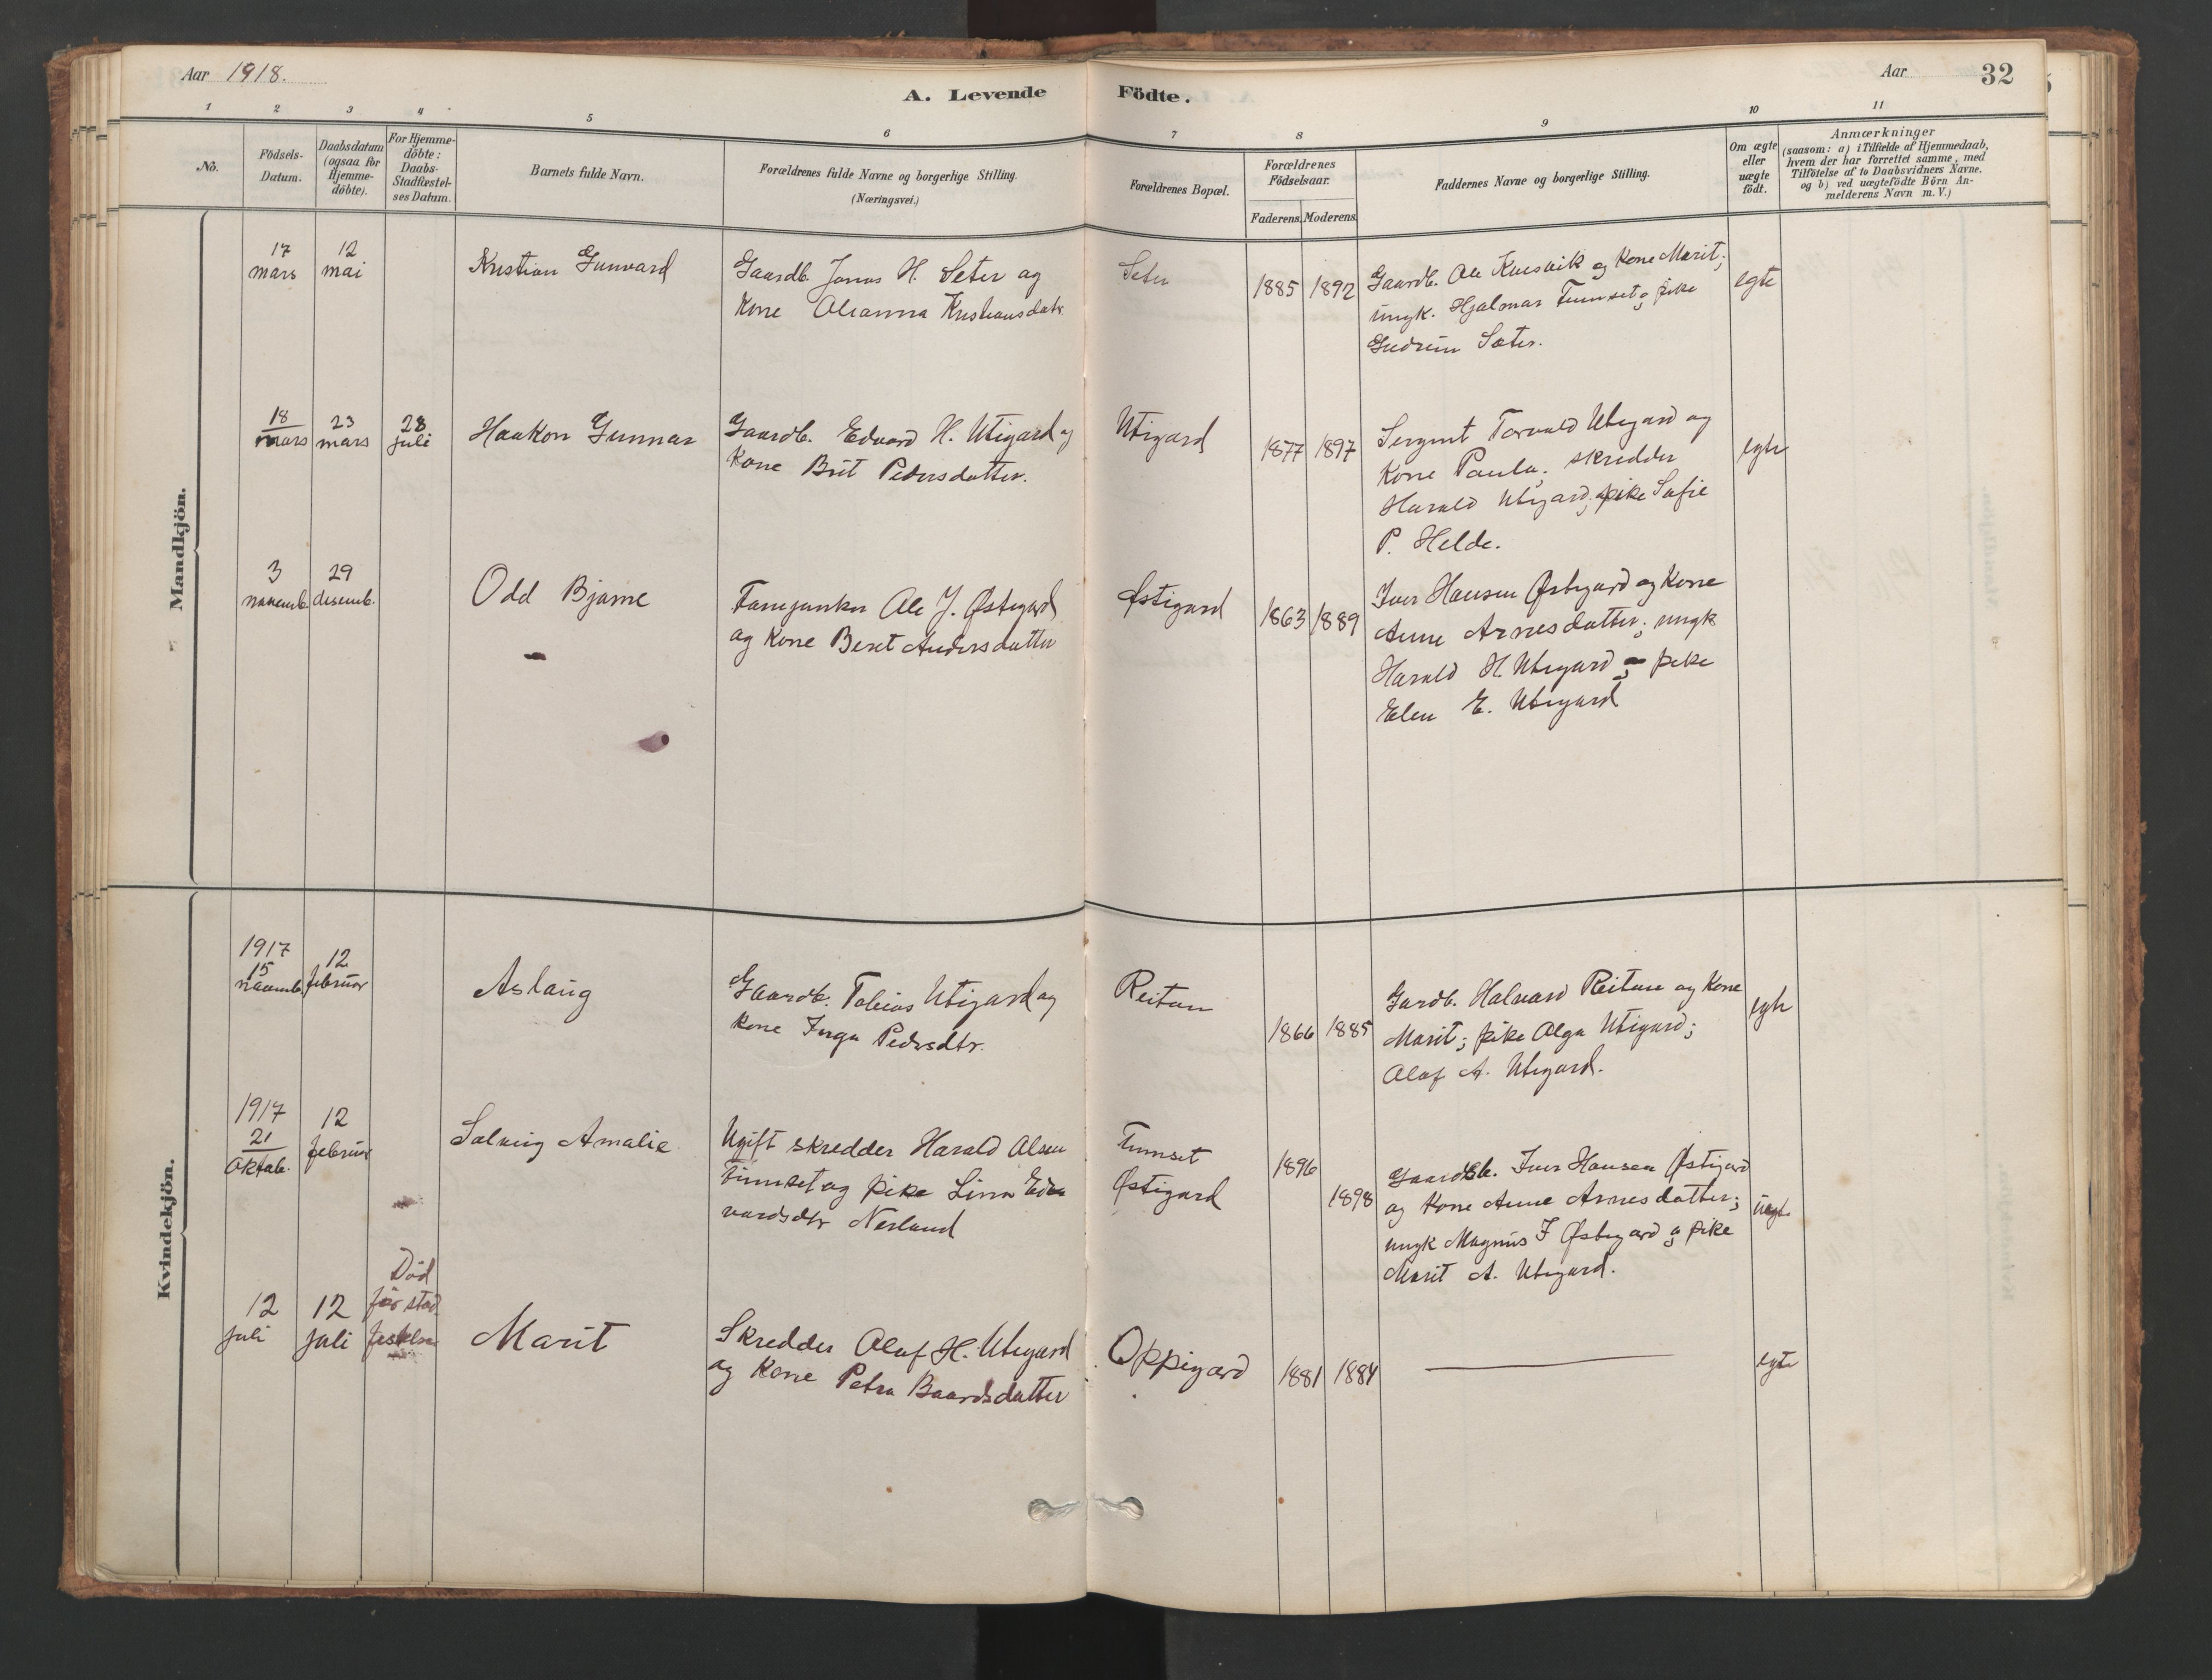 Aar 1918.
A. Levende Födte.
Aar
32
1 2 3 4 5 6 7 8 9 10 11
No.
Födsels-Datum.
Daabsdatum (ogsaa for Hjemme-döbte).
For Hjemme-döbte: Daabs-Stadfæstel-ses Datum.
Barnets fulde Navn.
Forældrenes fulde Navne og borgerlige Stilling.
(Næringsvei.)
Forældrenes Bopæl.
Forældrenes Födselsaar.
Faderens. Moderens.
Faddernes Navne og borgerlige Stilling.
Om ægte eller uægte födt.
Anmærkninger
(saasom: a) i Tilfælde af Hjemmedaab,
hvem der har forrettet samme, med
Tilföielse af to Daabsvidners Navne.
og b) ved uægtefödte Börn An-
melderens Navn m. V.)
Mandkjön.
17 mars
12 mai
Kristian Gunvard
Gaardb. Jonas H. Seter og
Kone Olianna Kristiansdatr.
Seter
1885 1892
Gaardb. Ole Kuesvik og Kone Marit;
ungk. Hjalmar Tumset og pike
Gudrun Seter.
egte
18 mars
23 mars
28 juli
Haakon Gunnar
Gaardb. Edvard H. Utigard og
Kone Brit Pedersdatter.
Utigard
1877 1897
Sergent Torvald Utigard og
Kone Paula; skredder
Harald Utigard; pike Sofie
P. Helde.
egte
3 novemb.
29 desemb.
Odd Bjarne
Fanejunker Ole J. Østigard
og Kone Beret Andersdatter
Østigard
1863 1889
Iver Hansen Østigard og Kone
Anne Arnesdatter; ungk
Harald H. Utigard og pike
Elen E. Utigard
Kvindekjön.
1917
15 novemb.
12 februar
Aslaug
Gaardb. Tobias Utigard og
Kone Inga Pedersdtr.
Reitan
1866 1885
Gardb. Halvard Reitan og Kone
Marit; pike Olga Utigard;
Olaf A. Utigard.
egte
1917
21 Oktob.
12 februar
Solveig Amalie
Ugift skredder Harald Olsen
Tumset og pike Lina Ed
vardsdtr Nesland
Tumset
Østigard
1896
1898
Gaardb. Iver Hansen Østigard
og Kone Anne Arnesdatter;
ungk Magnus I Østigard og pike
Marit A. Utigard.
uegte
12 juli
12 juli
Död
för stad
festelse
Marit
Skredder Olaf H. Utigard
og Kone Petra Baardsdatter
Oppigard
1881 1884
egte